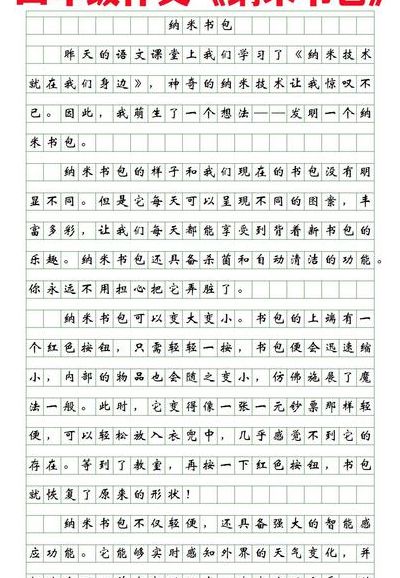 四年级作文《纳米书包》
纳米书包
昨天的语文课堂上我们学习了《纳米技术
就在我们身边》，神奇的纳米技术让我惊叹不
已。因此，我萌生了一个想法——发明一个纳
米书包。
纳米书包的样子和我们现在的书包没有明
显不同。但是它每天可以呈现不同的图案，丰
富多彩，让我们每天都能享受到背着新书包的
乐趣。纳米书包还具备杀菌和自动清洁的功能。
你永远不用担心把它弄脏了。
纳米书包可以变大变小。书包的上端有一
个红色按钮，只需轻轻一按，书包便会迅速缩
小，内部的物品也会随之变小，仿佛施展了魔
法一般。此时，它变得像一张一元钞票那样轻
便，可以轻松放入衣兜中，几乎感觉不到它的
存在。等到了教室，再按一下红色按钮，书包
就恢复了原来的形状！
纳米书包不仅轻便，还具备强大的智能感
应功能。它能够实时感知外界的天气变化，并